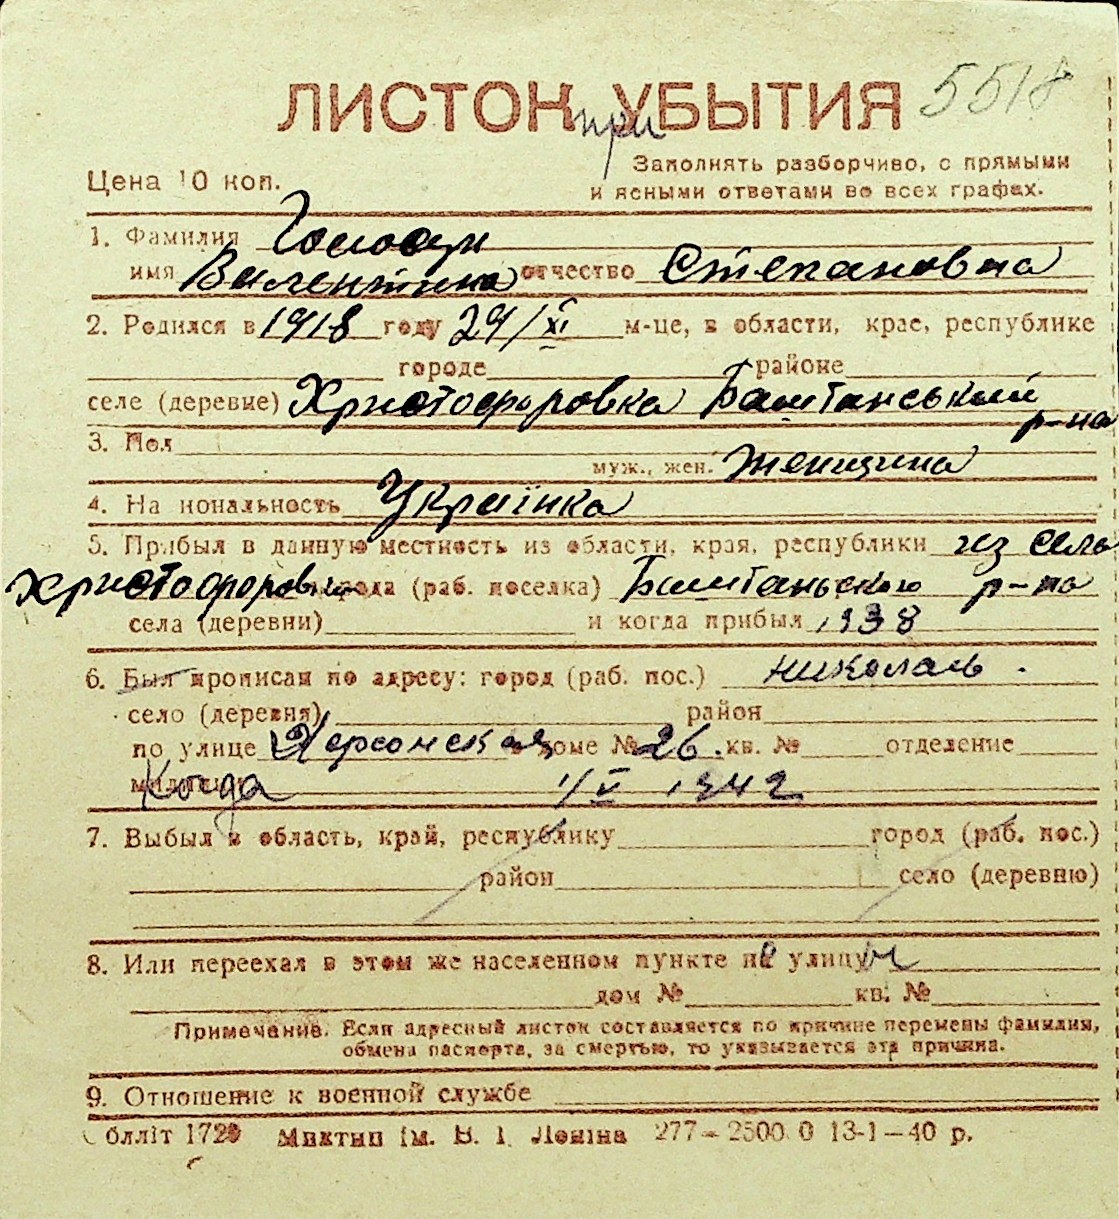 ЛИСТОК УБЫТИЯ 5518
при
Цена 10 коп.
Заполнять разборчиво, с прямыми
и ясными ответами во всех графах.
1. Фамилия
имя Валентина отчество Степановна
2. Родился в 1918 году 29/XI м-це, в области, крае, республике
городе районе
селе (деревне) Христофоровка Баштанський
р-на
3. Пол
муж., жен. Женщина
4. Национальность Українка
5. Прибыл в данную местность из области, края, республики из села
Христофоровки города (раб. поселка) Баштаньского р-на
села (деревни) и когда прибыл 1938
6. Был прописан по адресу: город (раб. пос.) Николаев.
село (деревня) район
по улице Херсонская доме № 26. кв. № отделение
милиции Когда 1/V 1942
7. Выбыл в область, край, республику город (раб. пос.)
район село (деревню)
8. Или переехал в этом же населенном пункте на улицу
дом № кв. №
Примечание. Если адресный листок составляется по причине перемены фамилия,
обмена паспорта, за смертью, то указывается эта причина.
9. Отношение к военной службе
блліт 1729 Миктип ім. В. І. Леніна 277 – 2500 0 13-1–40 р.